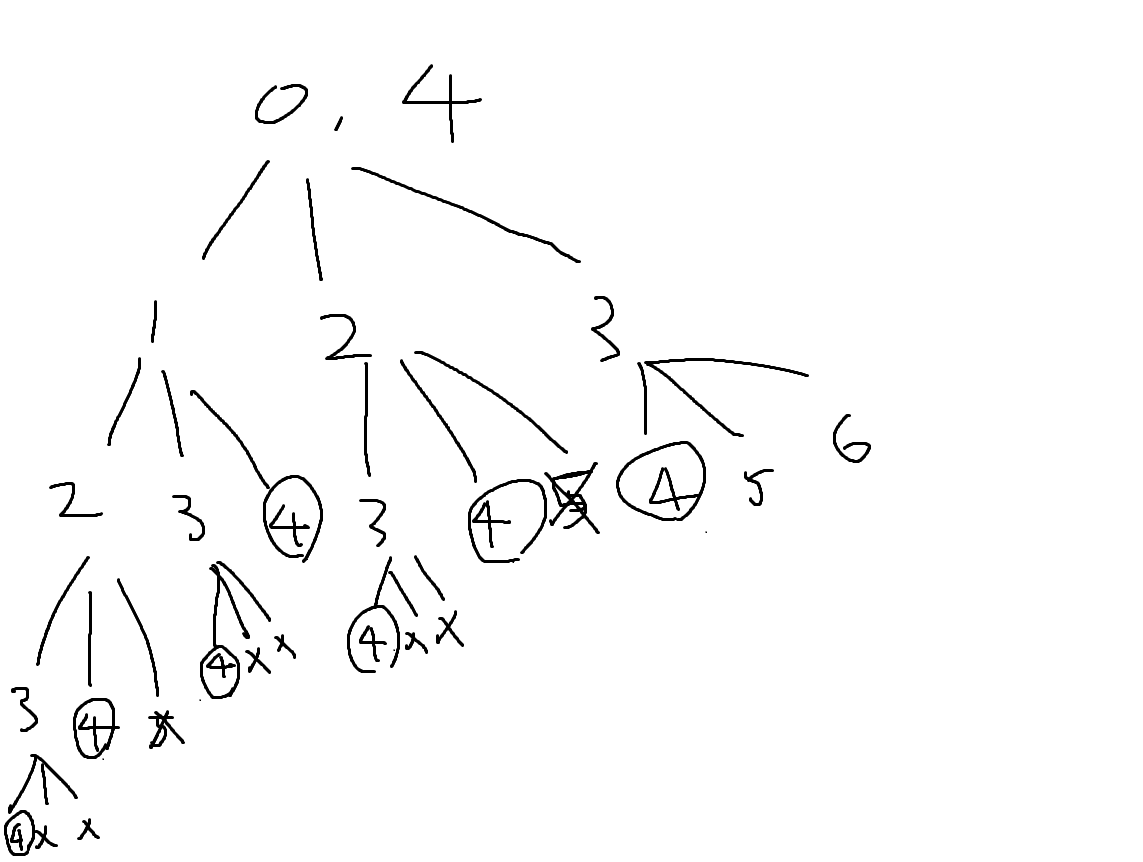 0, 4
1 2 3
2 3 4 3 4 4 5 6
3 4 4 x x 4 x x
4 x x